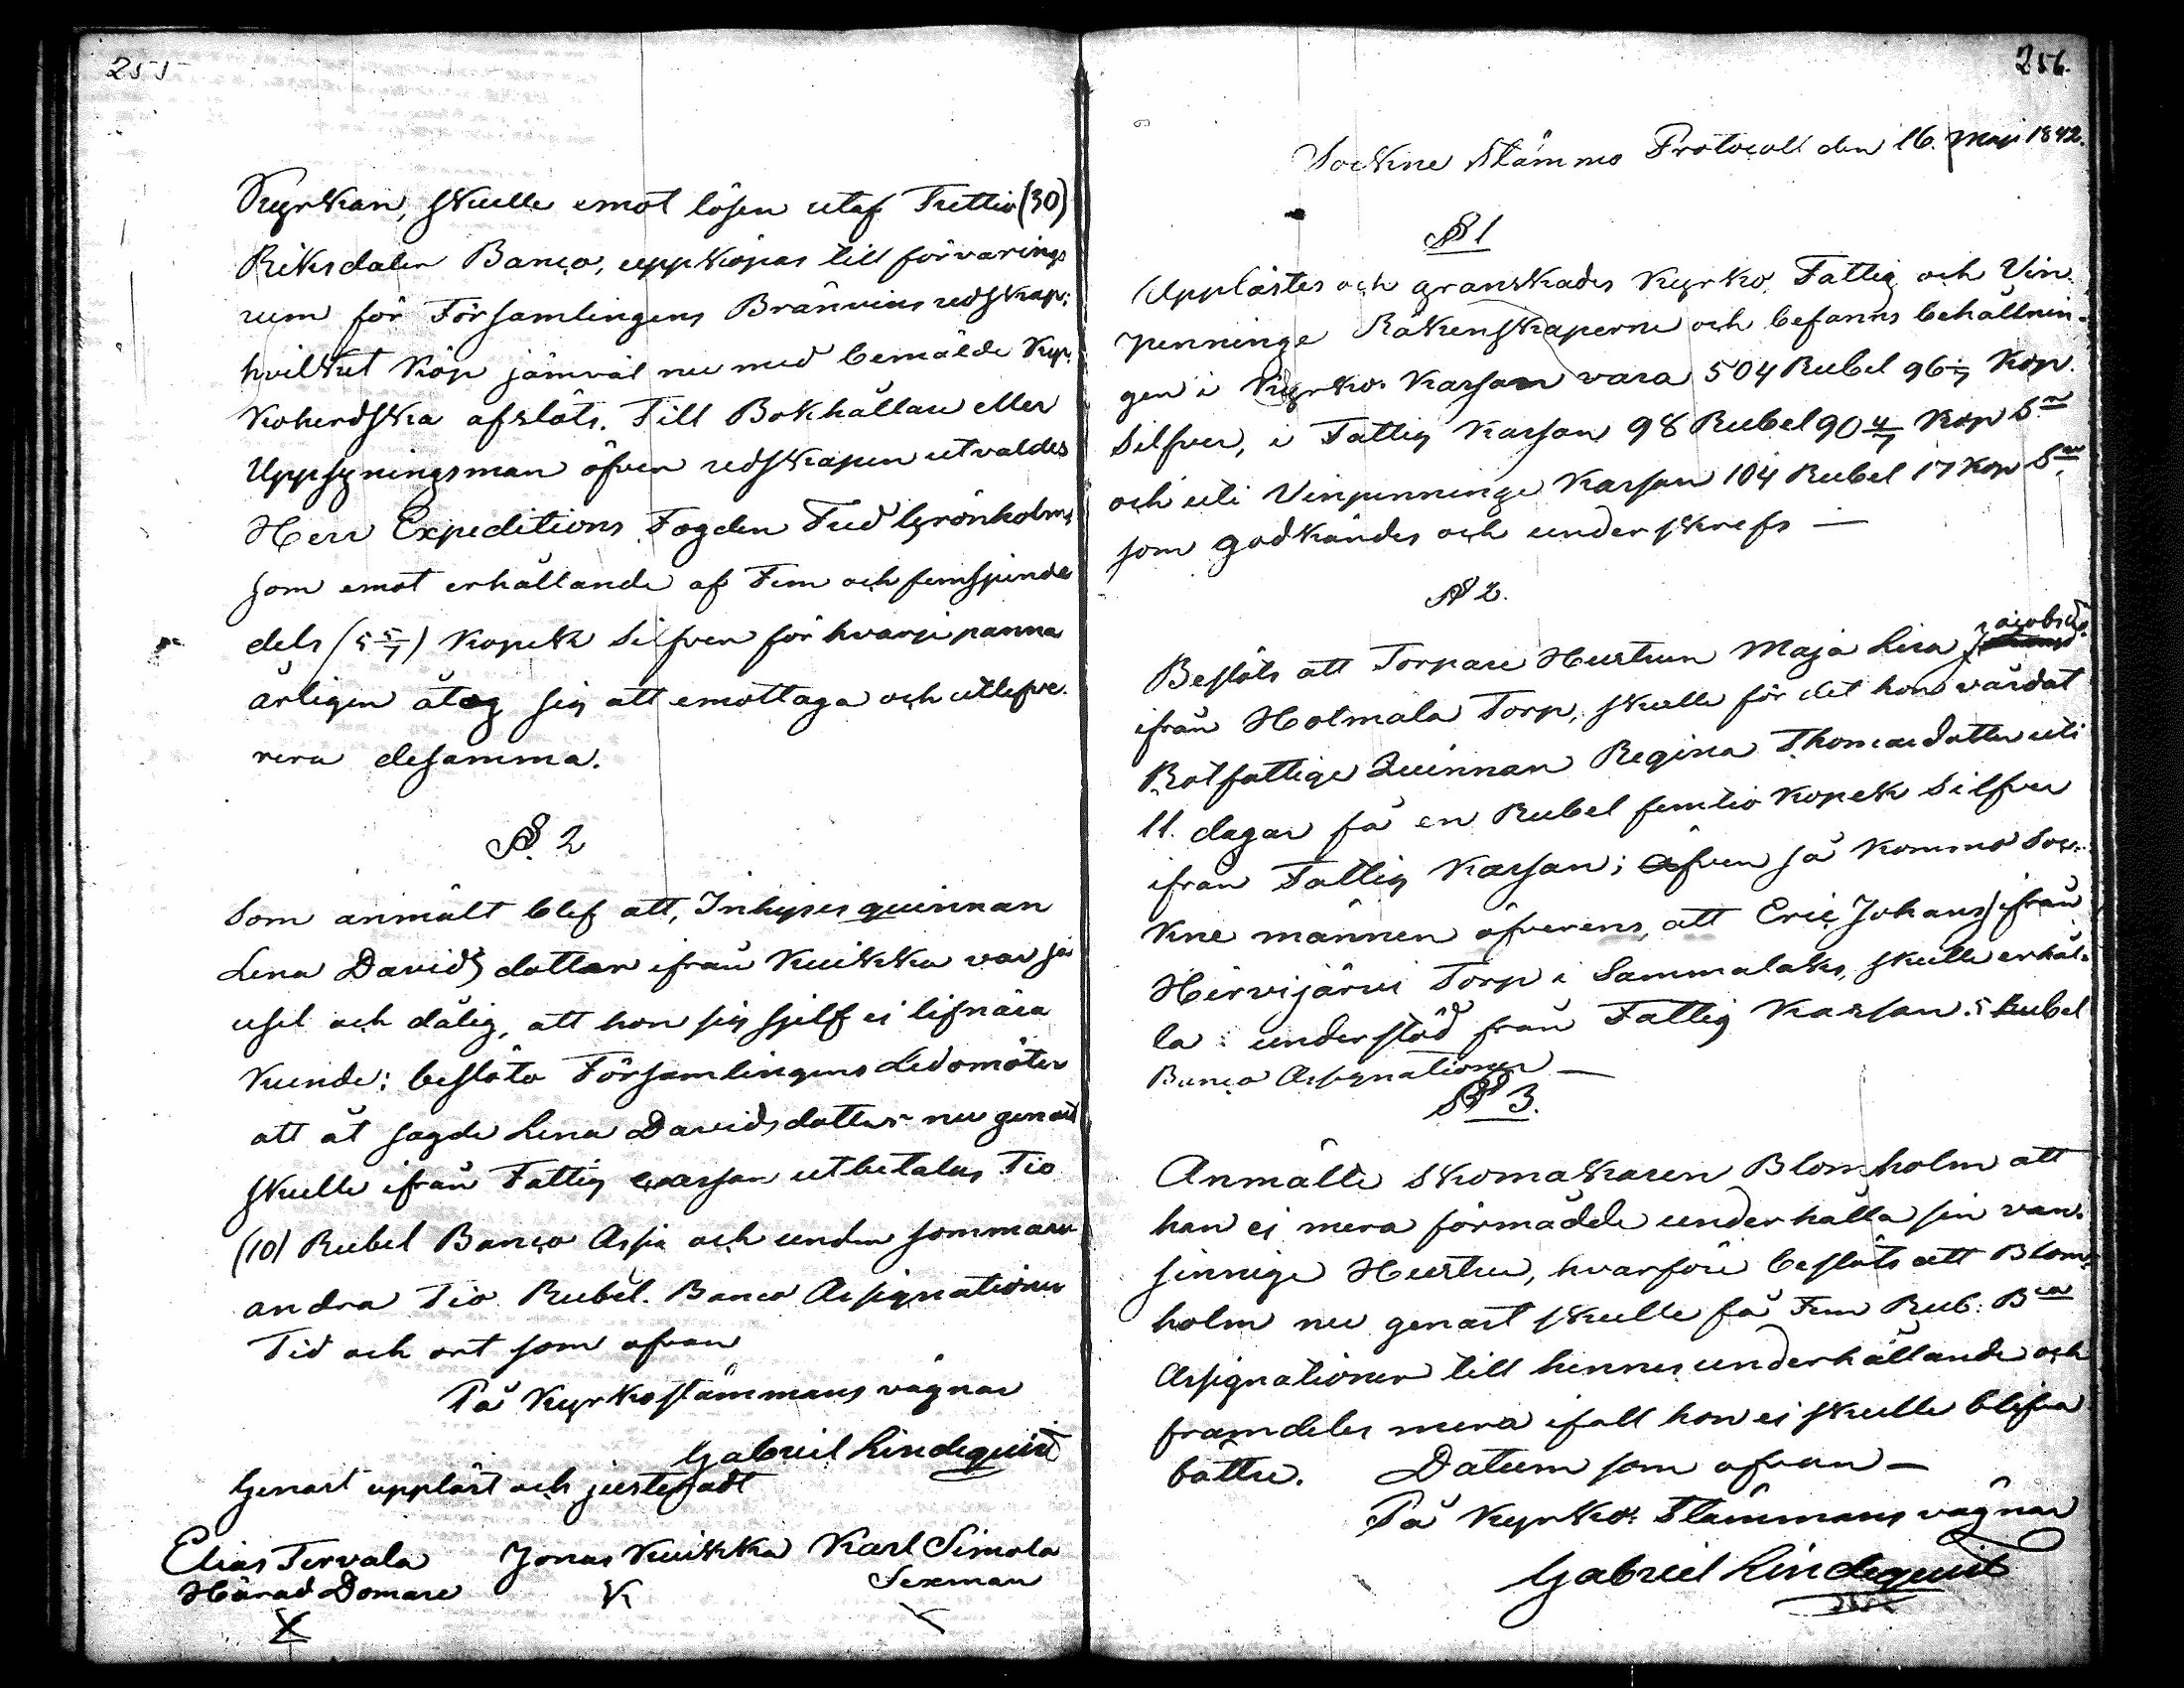 255
Kyrkan, skulle emot lösen utaf Trettio (30)
Riksdaler Banco, uppköpas till förvarings
rum för Församlingens Bränvins redskap:
hvilket köp jämväl nu med bemälde Kyr-
koherdska afslöts. Till Bokhållare eller
Uppsyningsman öfver redskapen utvaldes
Herr Expeditions Fogden Fred Grönholm,
som emot erhållande af Fem och femsjunde
dels (5 5/7) Kopek Silfver för hvarje panna
årligen åtog sig att emottaga och utlefve-
rera desamma.
§. 2
Som anmält blef att, Inhyses quinnan
Lena Davidsdotter ifrån Kuikka var så
usel och dålig, att hon sig sjelf ej lifnära
kunde; beslöto Församlingens Ledamöter
att åt sagde Lena Davidsdotter nu genast
skulle ifrån Fattig cassan utbetalas Tio
(10) Rubel Banco Assig och under sommaren
andra Tio Rubel. Banco Assignationer
Tid och ort som ofvan
På Kyrkostämmans vägnar
Gabriel Lindequist
Genast uppläst och justeradt
Elias Tervala Jonas Kuikka Karl Simola
Härad Domare Sexman
256.
Sockne Stämmo Protocoll den 16. Maji 1842.
§ 1
Upplästes och granskades Kyrko, Fattig och Vin-
penninge Räkenskaperne och befanns behållnin-
gen i Kyrko Kassan vara 504 Rubel 96 Kop.
Silfver, i Fattig Kassan 98 Rubel 90 4/7 Kop S
och uti Vinpenninge Kassan 104 Rubel 17 Kop S
som godkändes och underskrefs —
§ 2.
Beslöts att Torpare Hustrun Maja Lisa Jacobsd.
ifrån Hotmala Torp, skulle för det hon vårdat
Rotfattige Quinnan Regina Thomasdotter uti
11. dagar få en Rubel femtio Kopek Silfver
ifrån Fattig Kassan; äfven så kommo Soc-
kne männen öfverens, att Eric Johansson ifrån
Hirvijärvi Torp i Sammalaks, skulle erhål-
la understöd från Fattig Kassan 5 Rubel
Banco Assignationer —
§ 3.
Anmälte Skomakaren Blomholm att
han ej mera förmådde underhålla sin van-
sinnige Hustru, hvarföre beslöts att Blom-
holm nu genast skulle få Fem Rub: Bco
Assignationer till hennes underhållande och
framdeles mera ifall hon ej skulle blifva
bättre. Datum som ofvan —
På Kyrko: Stämmans vägnar
Gabriel Lindequist